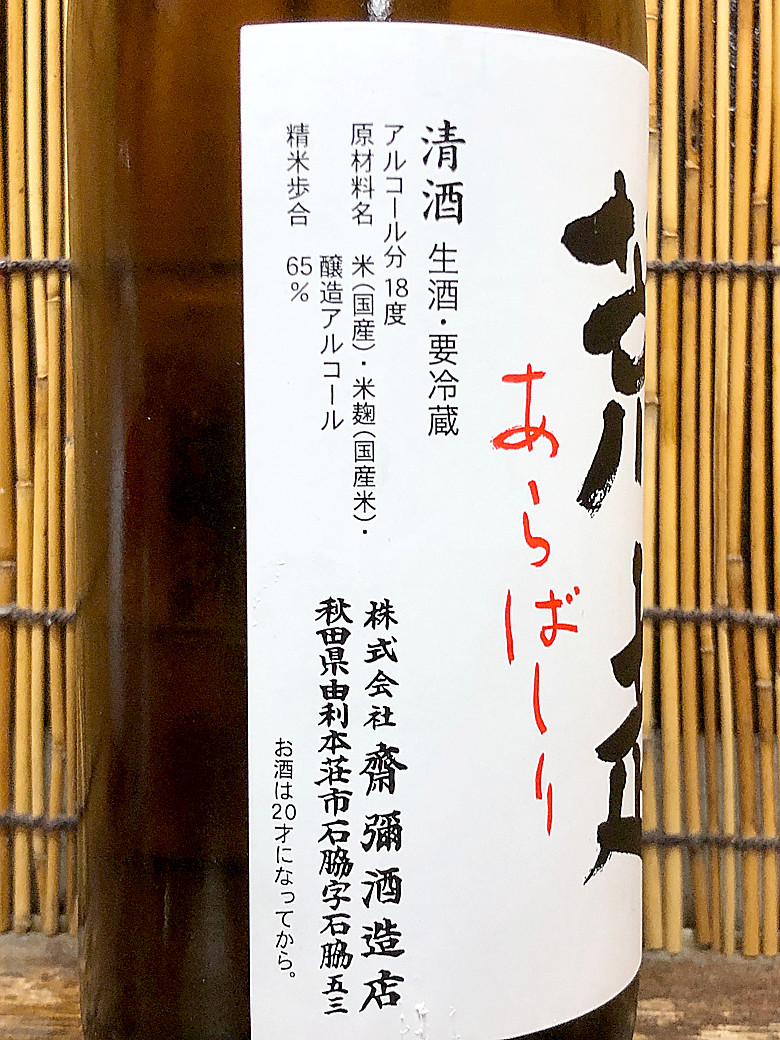 あらばしり
清酒 生酒・要冷蔵
アルコール分 18度
原材料名 米(国産)・米麹(国産米)・
醸造アルコール
精米歩合 65%
株式会社 齋彌酒造店
秋田県由利本荘市石脇字石脇五三
お酒は20才になってから。